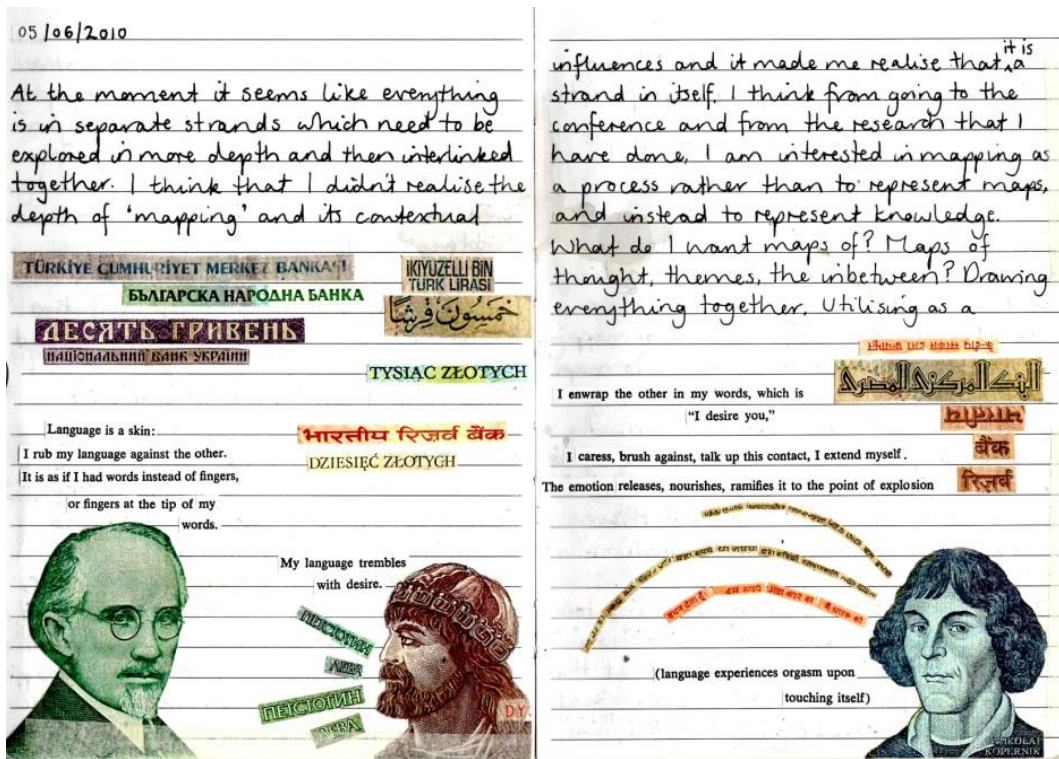 05/06/2010
At the moment it seems like everything
is in separate strands which need to be
explored in more depth and then interlinked
together. I think that I didn't realise the
depth of 'mapping' and its contextual
TÜRKİYE CUMHURİYET MERKEZ BANKASI
İKİYÜZELLİ BİN
TÜRK LİRASI
БЪЛГАРСКА НАРОДНА БАНКА
خمسون قرشًا
ДЕСЯТЬ ГРИВЕНЬ
НАЦІОНАЛЬНИЙ БАНК УКРАЇНИ
TYSIĄC ZŁOTYCH
Language is a skin:
भारतीय रिज़र्व बैंक
I rub my language against the other.
DZIESIĘĆ ZŁOTYCH
It is as if I had words instead of fingers,
or fingers at the tip of my
words.
My language trembles
with desire.
ПЕТСТОТИН
ЛЕВА
ПЕТСТОТИН
ЛЕВА
DY
influences and it made me realise that it is a
strand in itself. I think from going to the
conference and from the research that I
have done, I am interested in mapping as
a process rather than to represent maps,
and instead to represent knowledge.
What do I want maps of? Maps of
thought, themes, the inbetween? Drawing
everything together. Utilising as a
केन्द्रीय सरकार द्वारा प्रत्याभूत
البنك المركزى المصرى
I enwrap the other in my words, which is
"I desire you,"
भारतीय
बैंक
I caress, brush against, talk up this contact, I extend myself.
रिज़र्व
The emotion releases, nourishes, ramifies it to the point of explosion
(language experiences orgasm upon
touching itself)
MIKOŁAJ
KOPERNIK